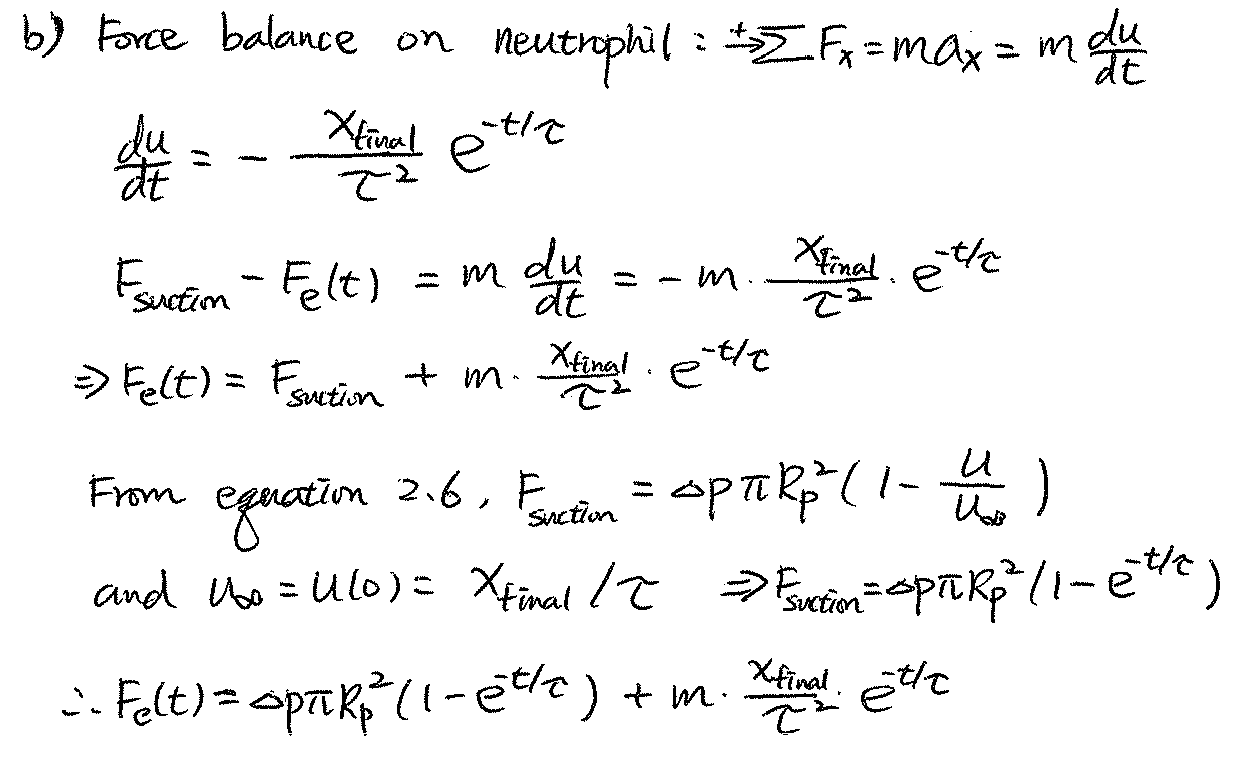 b) Force balance on neutrophil : +→ ΣFₓ = maₓ = m du/dt
du/dt = - X_final/τ² e^(-t/τ)
F_suction - F_e(t) = m du/dt = - m · X_final/τ² · e^(-t/τ)
⇒ F_e(t) = F_suction + m · X_final/τ² · e^(-t/τ)
From equation 2.6, F_suction = Δpπ R_p² (1 - u/u_∞)
and u_∞ = u(0) = X_final/τ ⇒ F_suction = Δpπ R_p² (1 - e^(-t/τ))
∴ F_e(t) = Δpπ R_p² (1 - e^(-t/τ)) + m · X_final/τ² · e^(-t/τ)